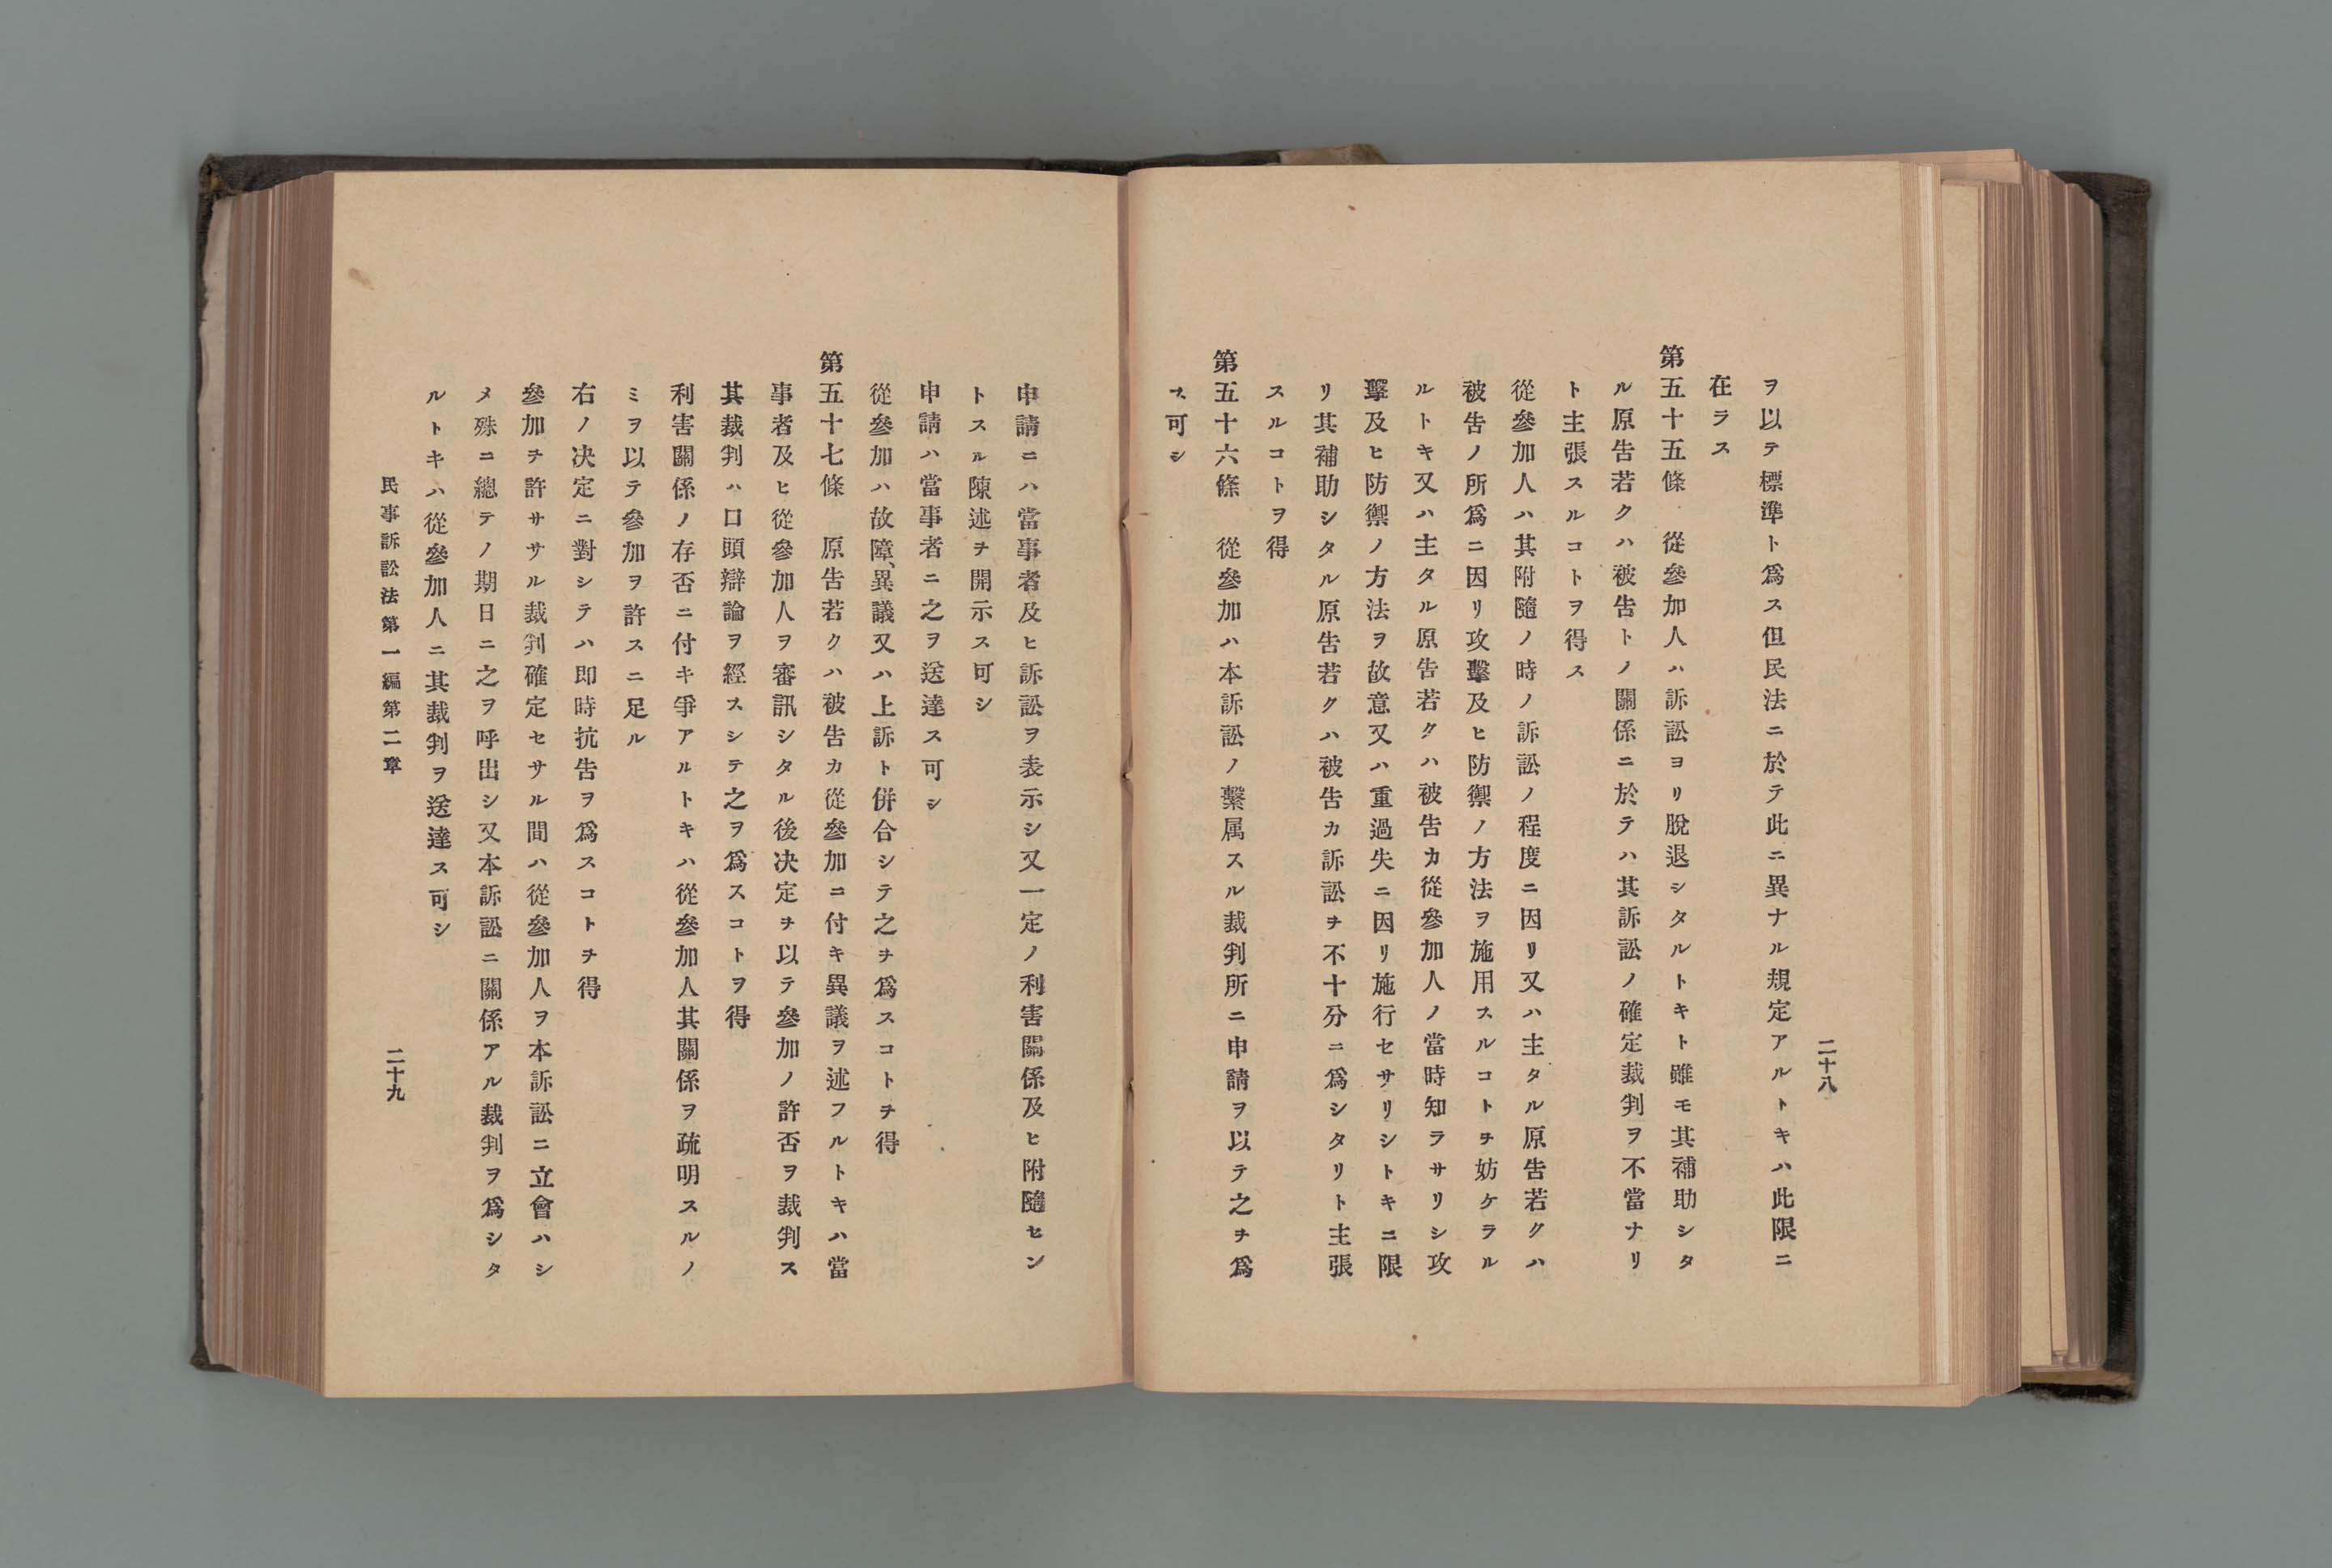 二十八
ヲ以テ標準ト爲ス但民法ニ於テ此ニ異ナル規定アルトキハ此限ニ
在ラス
第五十五條　從參加人ハ訴訟ヨリ脫退シタルトキト雖モ其補助シタ
ル原告若クハ被告トノ關係ニ於テハ其訴訟ノ確定裁判ヲ不當ナリ
ト主張スルコトヲ得ス
從參加人ハ其附隨ノ時ノ訴訟ノ程度ニ因リ又ハ主タル原告若クハ
被告ノ所爲ニ因リ攻擊及ヒ防禦ノ方法ヲ施用スルコトヲ妨ケラル
ルトキ又ハ主タル原告若クハ被告カ從參加人ノ當時知ラサリシ攻
擊及ヒ防禦ノ方法ヲ故意又ハ重過失ニ因リ施行セサリシトキニ限
リ其補助シタル原告若クハ被告カ訴訟ヲ不十分ニ爲シタリト主張
スルコトヲ得
第五十六條　從參加ハ本訴訟ノ繫属スル裁判所ニ申請ヲ以テ之ヲ爲
ス可シ
申請ニハ當事者及ヒ訴訟ヲ表示シ又一定ノ利害關係及ヒ附隨セン
トスル陳述ヲ開示ス可シ
申請ハ當事者ニ之ヲ送達ス可シ
從參加ハ故障、異議又ハ上訴ト併合シテ之ヲ爲スコトヲ得
第五十七條　原告若クハ被告カ從參加ニ付キ異議ヲ述フルトキハ當
事者及ヒ從參加人ヲ審訊シタル後決定ヲ以テ參加ノ許否ヲ裁判ス
其裁判ハ口頭辯論ヲ經スシテ之ヲ爲スコトヲ得
利害關係ノ存否ニ付キ爭アルトキハ從參加人其關係ヲ疏明スルノ
ミヲ以テ參加ヲ許スニ足ル
右ノ決定ニ對シテハ即時抗告ヲ爲スコトヲ得
參加ヲ許サヽル裁判確定セサル間ハ從參加人ヲ本訴訟ニ立會ハシ
メ殊ニ總テノ期日ニ之ヲ呼出シ又本訴訟ニ關係アル裁判ヲ爲シタ
ルトキハ從參加人ニ其裁判ヲ送達ス可シ
民事訴訟法第一編第二章
二十九